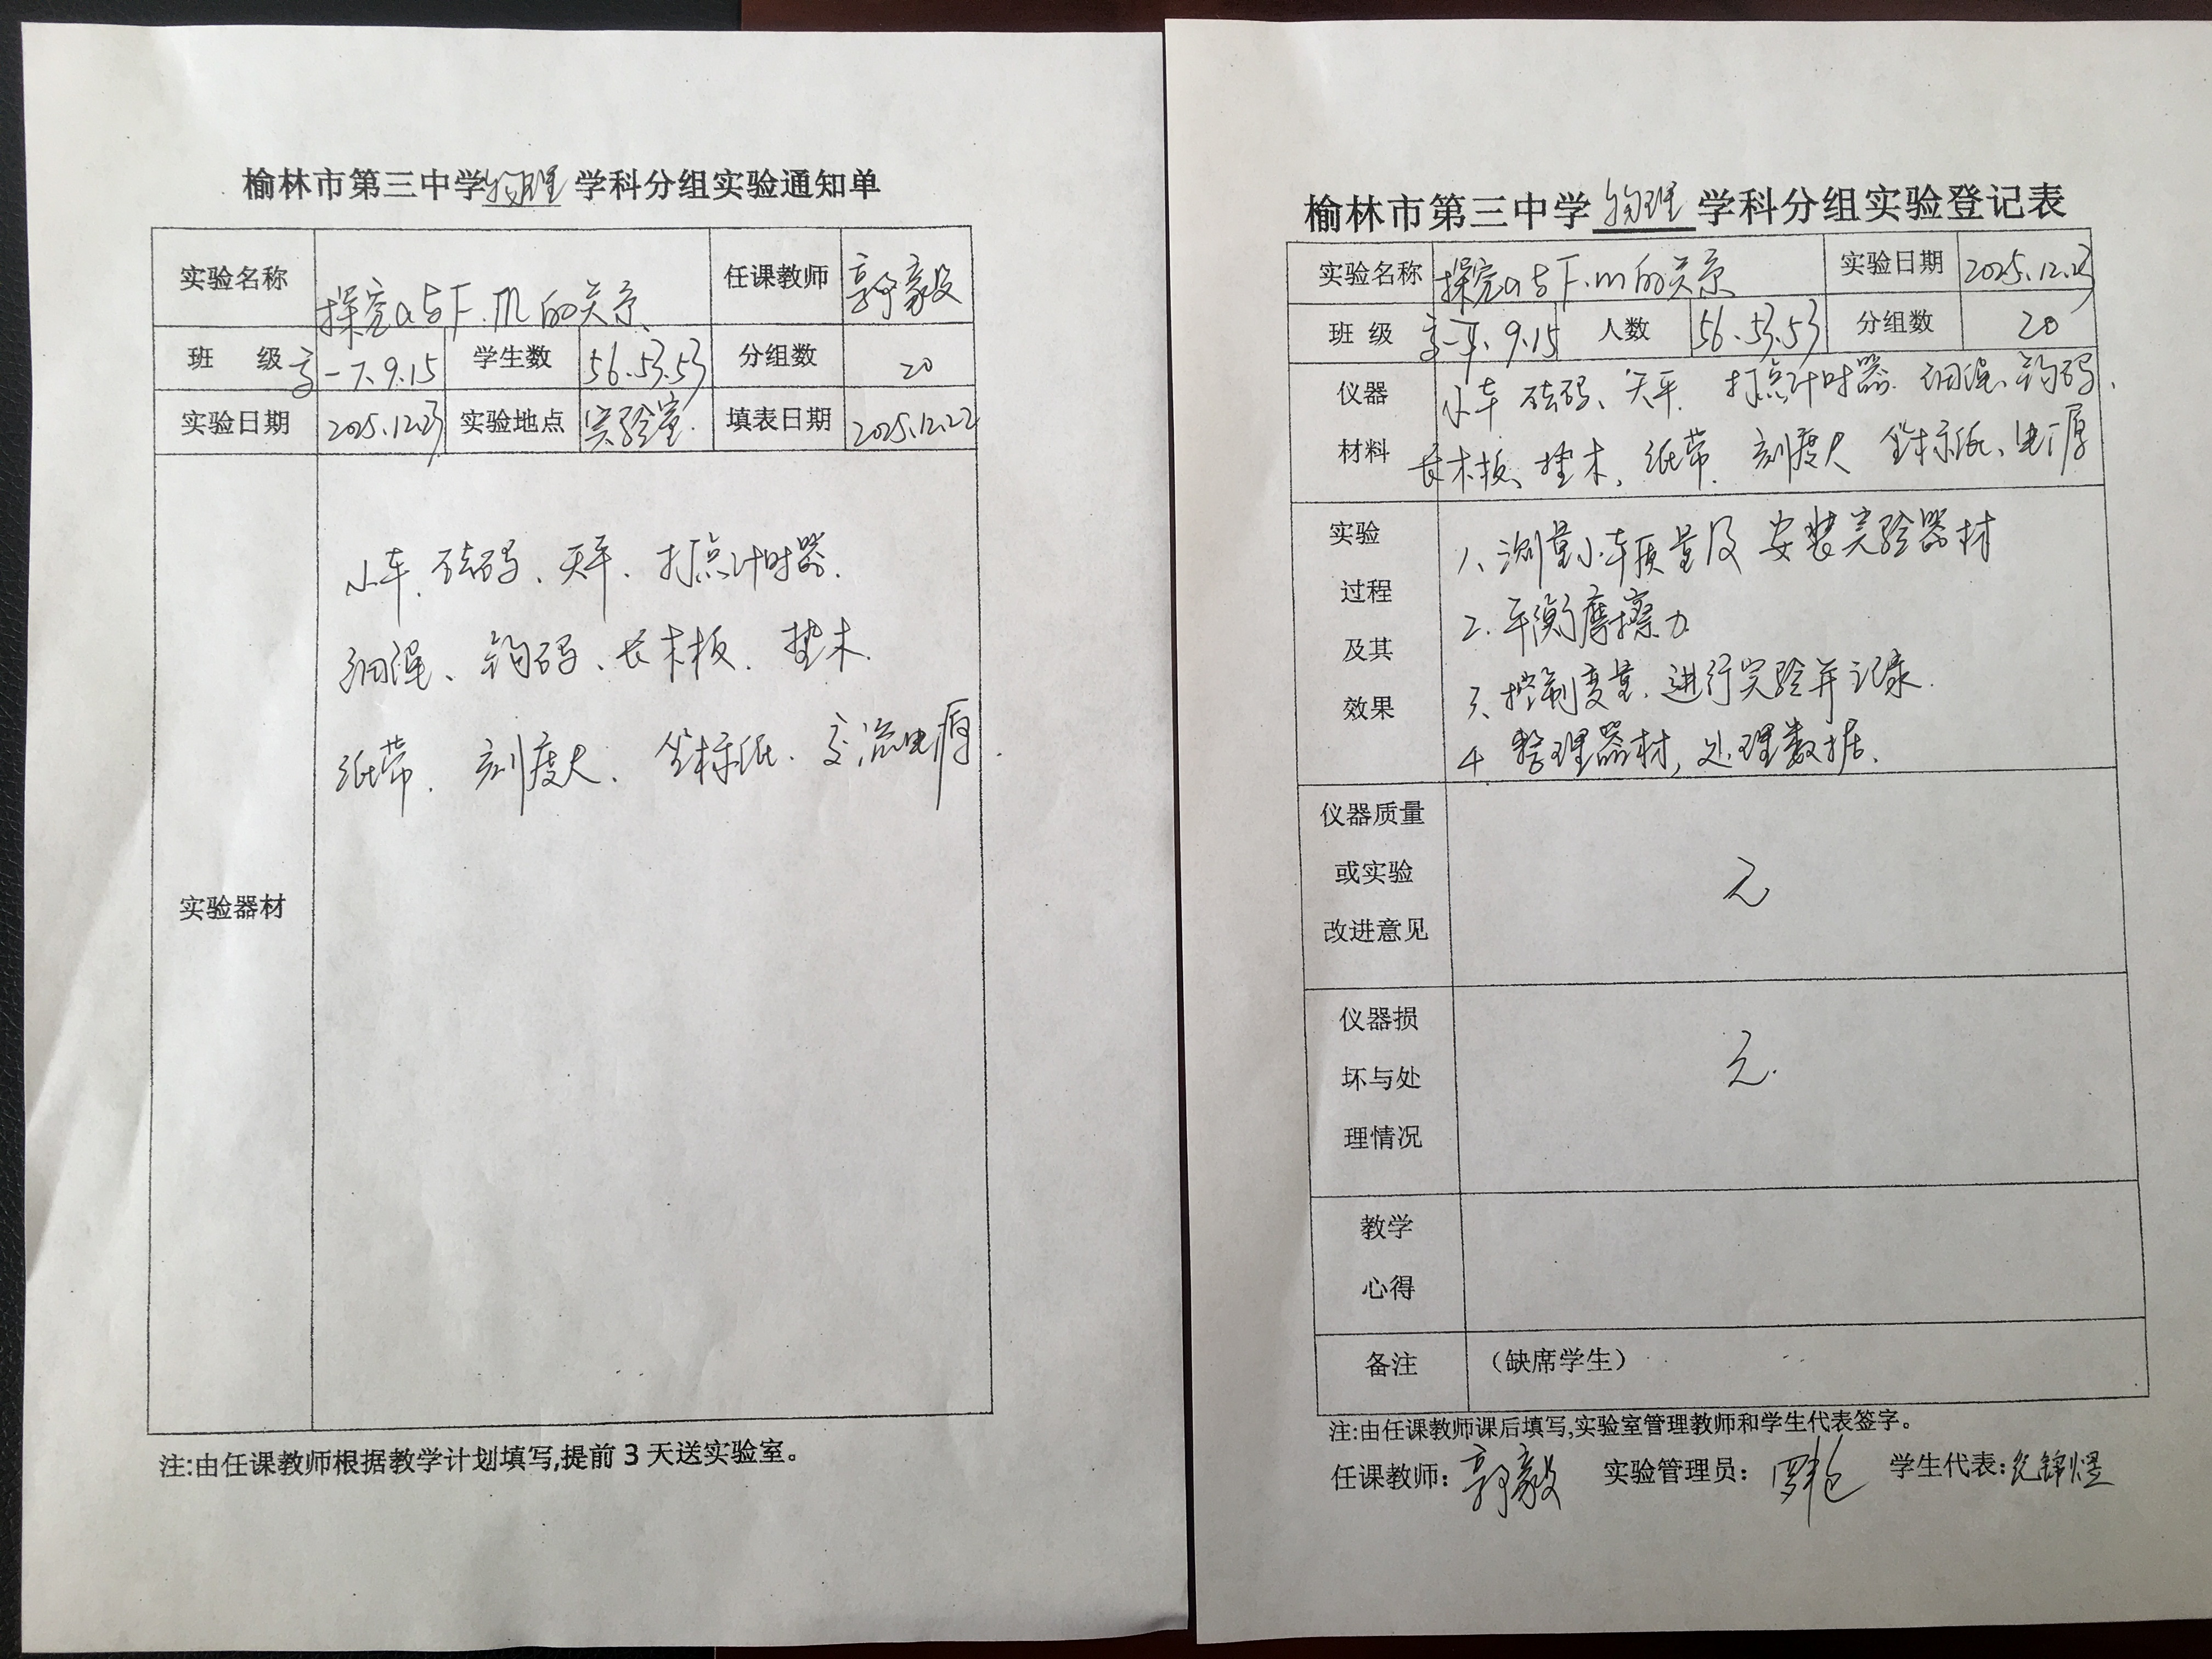 榆林市第三中学物理学科分组实验通知单
实验名称 探究a与F.m的关系 任课教师 郭毅
班 级 高一7.9.15 学生数 56.53.53 分组数 20
实验日期 2025.12.23 实验地点 实验室. 填表日期 2025.12.22
实验器材
小车、砝码、天平、打点计时器.
细绳、钩码、长木板、垫木.
纸带. 刻度尺、坐标纸、交流电源.
注:由任课教师根据教学计划填写,提前3天送实验室。
榆林市第三中学物理学科分组实验登记表
实验名称 探究a与F.m的关系 实验日期 2025.12.23
班 级 高一7.9.15 人数 56.53.53 分组数 20
仪器材料
小车 砝码、天平. 打点计时器. 细绳、钩码、
长木板、垫木、纸带. 刻度尺 坐标纸、电源
实验过程及其效果
1、测量小车质量及安装实验器材
2. 平衡摩擦力
3、控制变量、进行实验并记录.
4 整理器材, 处理数据、
仪器质量或实验改进意见 无
仪器损坏与处理情况 无.
教学心得
备注 （缺席学生）
注:由任课教师课后填写,实验室管理教师和学生代表签字。
任课教师: 郭毅 实验管理员: 学生代表: